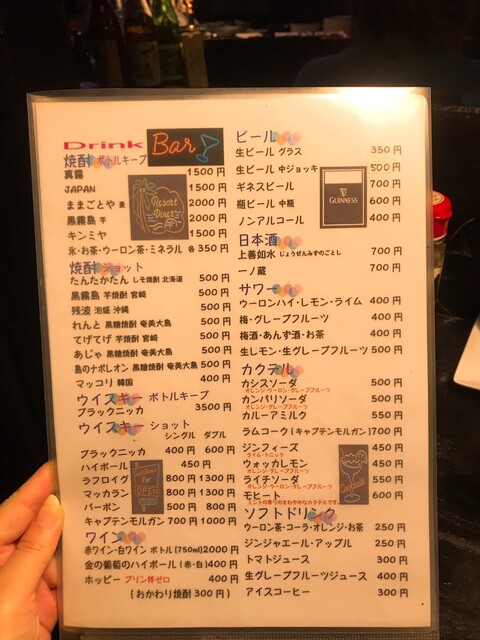 Drink
Bar
焼酎 ボトルキープ
真露 1500円
JAPAN 1500円
ままごとや 麦 2000円
黒霧島 芋 2000円
キンミヤ 1500円
氷・お茶・ウーロン茶・ミネラル 各350円
Resort Diner
焼酎 ショット
たんたかたん しそ焼酎 北海道 500円
黒霧島 芋焼酎 宮崎 500円
残波 泡盛 沖縄 500円
れんと 黒糖焼酎 奄美大島 500円
てげてげ 芋焼酎 宮崎 500円
あじゃ 黒糖焼酎 奄美大島 500円
島のナポレオン 黒糖焼酎 奄美大島 500円
マッコリ 韓国 400円
ウイスキー ボトルキープ
ブラックニッカ 3500円
ウイスキー ショット
シングル ダブル
ブラックニッカ 400円 600円
ハイボール 450円
ラフロイグ 800円 1300円
マッカラン 800円 1300円
バーボン 500円 800円
キャプテンモルガン 700円 1000円
OPEN
ワイン
赤ワイン・白ワイン ボトル(750ml) 2000円
金の葡萄のハイボール(赤・白) 400円
ホッピー プリン体ゼロ 400円
(おかわり焼酎 300円)
ビール
生ビール グラス 350円
生ビール 中ジョッキ 500円
ギネスビール 700円
瓶ビール 中瓶 600円
ノンアルコール 400円
GUINNESS
日本酒
上善如水 じょうぜんみずのごとし 700円
一ノ蔵 700円
サワー
ウーロンハイ・レモン・ライム 400円
梅・グレープフルーツ 400円
梅酒・あんず酒・お茶 400円
生レモン・生グレープフルーツ 500円
カクテル
カシスソーダ 500円
オレンジ・ウーロン・グレープフルーツ
カンパリソーダ 500円
オレンジ・グレープフルーツ
カルーアミルク 550円
ラムコーク(キャプテンモルガン) 700円
ジンフィーズ 450円
ライム・トニック
ウォッカレモン 450円
オレンジ・グレープフルーツ
ライチソーダ 550円
オレンジ・ウーロン・グレープフルーツ
モヒート 600円
ミントの香りのさわやかなカクテルです。
ソフトドリンク
ウーロン茶・コーラ・オレンジ・お茶 250円
ジンジャエール・アップル 250円
トマトジュース 300円
生グレープフルーツジュース 400円
アイスコーヒー 300円